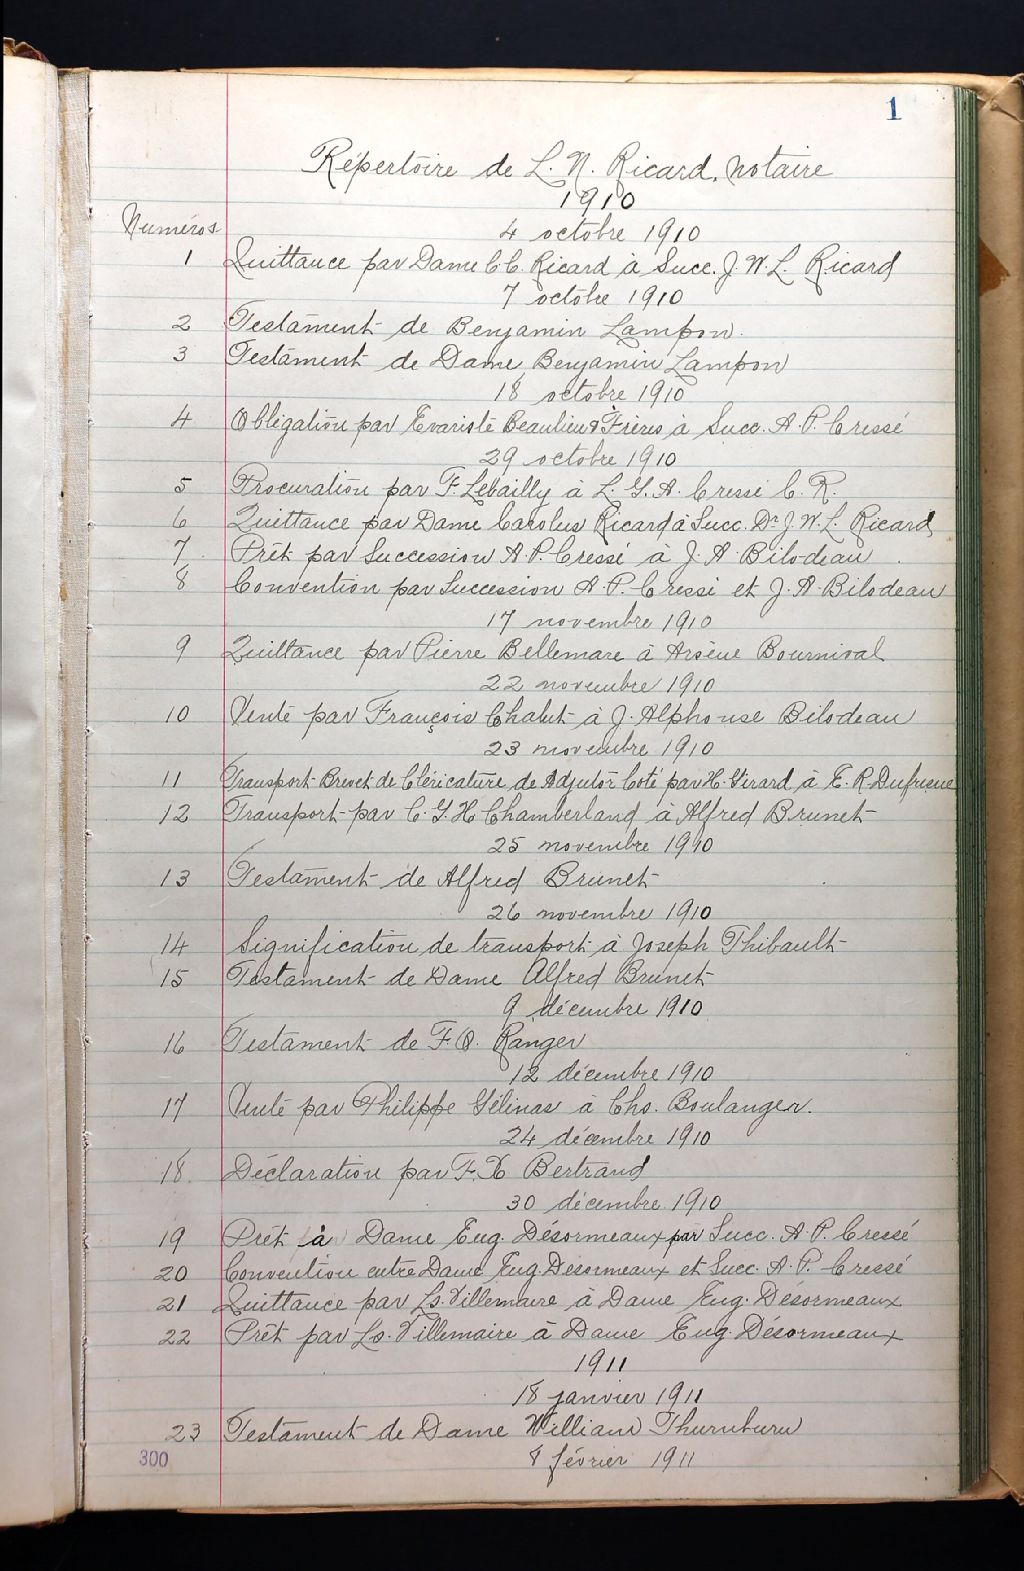 1
Répertoire de L. N. Ricard, notaire
1910
Numéros
4 octobre 1910
1 Quittance par Dame C C. Ricard à Succ. J. W. L. Ricard
7 octobre 1910
2 Testament de Benjamin Lampon.
3 Testament de Dame Benjamin Lampon
18 octobre 1910
4 Obligation par Evariste Beaulieu & Frères à Succ. A. P. Cressé
29 octobre 1910
5 Procuration par F. Lebailly à L. G. A. Cressé C. R.
6 Quittance par Dame Carolus Ricard à Succ. Dr J. W. L. Ricard
7 Prêt par Succession A. P. Cressé à J. A. Bilodeau
8 Convention par Succession A. P. Cressé et J. A. Bilodeau
17 novembre 1910
9 Quittance par Pierre Bellemare à Arsène Bournival
22 novembre 1910
10 Vente par François Chalut à J. Alphonse Bilodeau
23 novembre 1910
11 Transport Brevet de Cléricature de Adjutor Coté par H. Girard à E. R. Dufresne
12 Transport par C. G. H Chamberland à Alfred Brunet
25 novembre 1910
13 Testament de Alfred Brunet
26 novembre 1910
14 Signification de transport à Joseph Thibault
15 Testament de Dame Alfred Brunet
9 décembre 1910
16 Testament de F. O. Ranger
12 décembre 1910
17 Vente par Philippe Gélinas à Chs. Boulanger.
24 décembre 1910
18. Déclaration par F. X Bertrand
30 décembre 1910
19 Prêt à Dame Eug. Désormeaux par Succ. A. P. Cressé
20 Convention entre Dame Eug. Desormeaux et Succ. A. P. Cressé
21 Quittance par Ls. Villemaire à Dame Eug. Désormeaux
22 Prêt par Ls. Villemaire à Dame Eug. Désormeaux
1911
18 janvier 1911
23 Testament de Dame William
300
8 février 1911